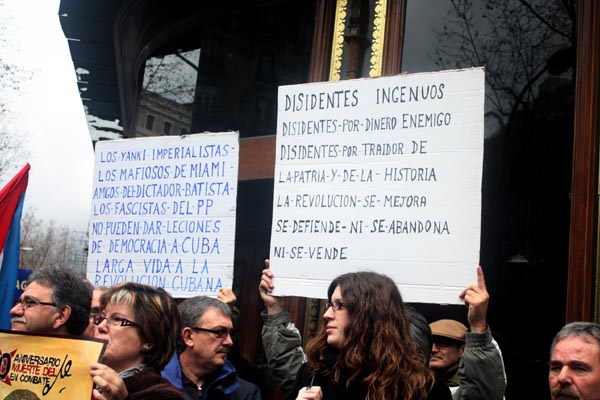 LOS-YANKI-IMPERIALISTAS-
LOS MAFIOSOS DE MIAMI
AMIGOS-DEL-DICTADOR-BATISTA-
LOS-FASCISTAS-DEL-PP
NO-PUEDEN-DAR-LECIONES
DE DEMOCRACIA-A-CUBA
LARGA VIDA A LA
REVOLUCION CUBANA
DISIDENTES INGENUOS
DISIDENTES-POR-DINERO ENEMIGO
DISIDENTES-POR TRAIDOR DE
LA-PATRIA-Y-DE-LA-HISTORIA
LA REVOLUCION-SE-MEJORA
SE-DEFIENDE-NI-SE-ABANDONA
NI-SE-VENDE
ANIVERSARIO
MUERTE DEL
EN COMBATE